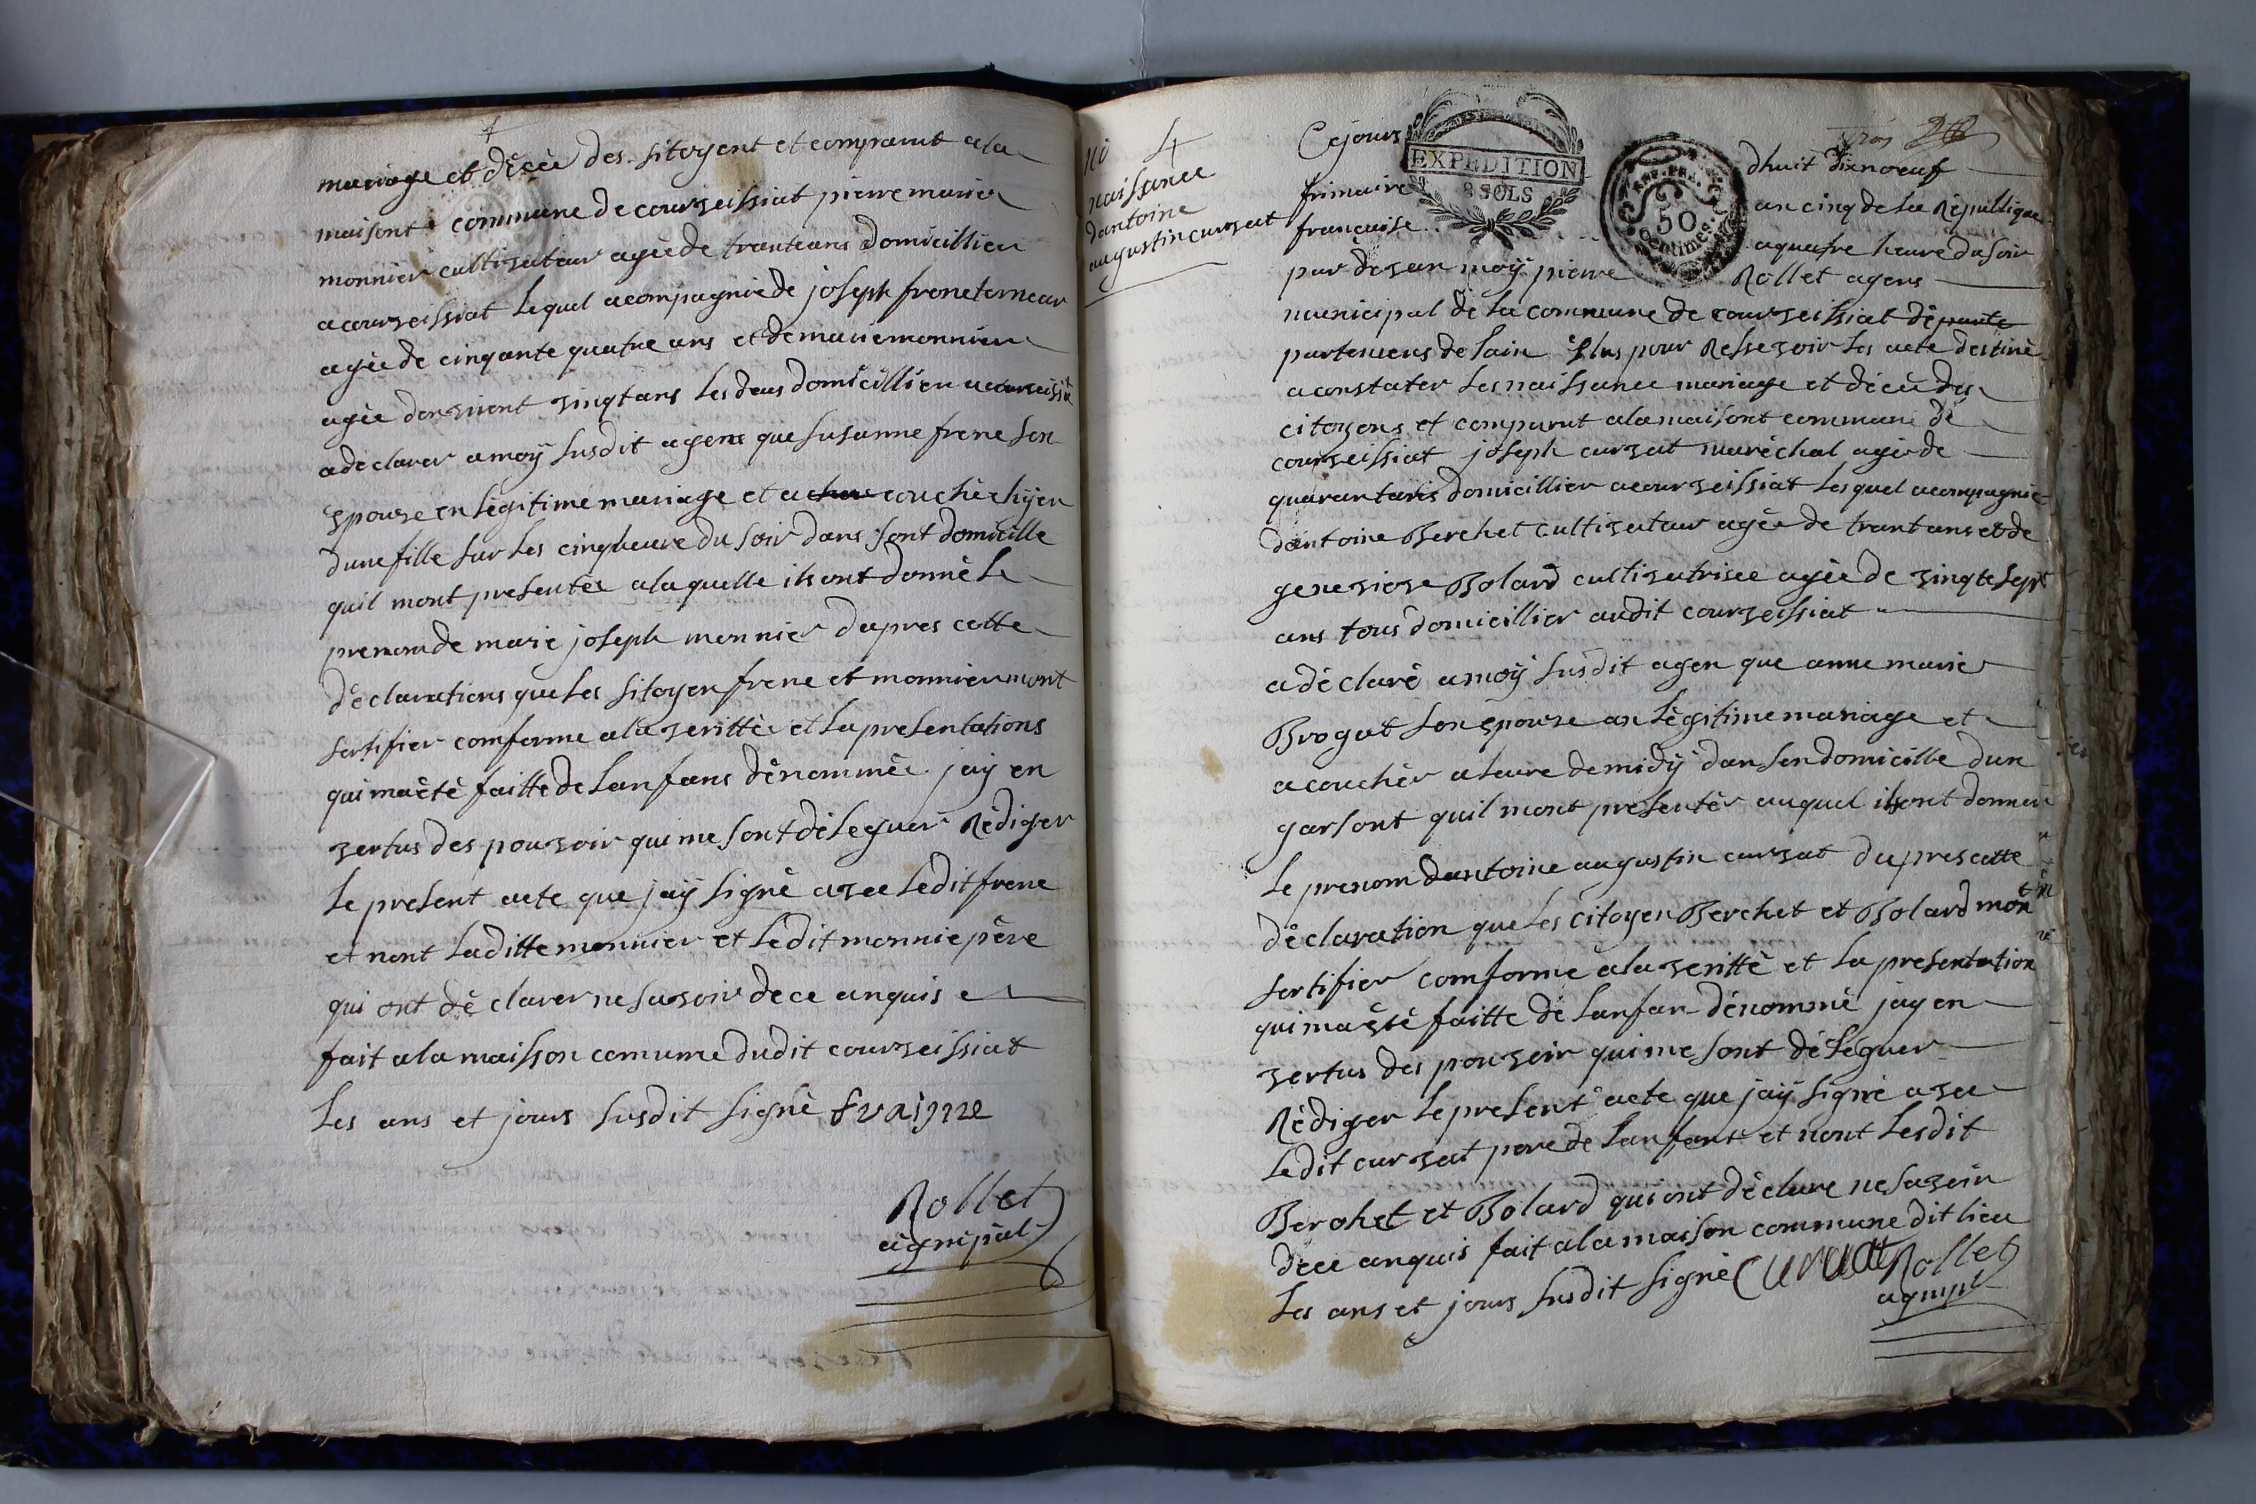 mariage et décée des sitoyent et comparut a la
maisont commune de courveissiat pierre marie
monnier cultivateur agée de trante ans domicillier
a courveissiat lequel acompagniéde joseph frene terneur
agée de cinqante quatre ans et de marie monnier
agée denviront vingt ans les deus domicillier a courveissiat
a déclarer a moÿ susdit agent que susanne frene son
epouze en légitime mariage et a chu couché chÿer
dune fille sur les cinq heure du soir dans sont domicille
quil mont presentée a laquelle ils ont donné le
prenom de marie joseph monnier dapres cette
déclarations que les sitoyen frene et monnier mont
sertifier comforme a la verittée et la presentations
qui ma été faitte de lanfans dénommée jaÿ en
vertus des pouvoir qui me sont déleguér Rédiger
le present acte que jaÿ signé avec ledit frene
et nont laditte monnier et ledit monnie père
qui ont déclarer ne savoir de ce anquis
fait a la maisson comume dudit courveissiat
les ans et jours susdit signé fraijne
Rollet
agmipal
no 4
naissance
dantoine
augustin curvat
trois
Cejours dhuit dixnoeuf
EXPEDITION
8 SOLS
REP. FRA.
50
Centimes
frimaire an cinq de la République
francaise a quatre heure du soir
par devan moÿ pierre Rollet agens
municipal de la commune de courveissiat départe
partemens de lain élus pour Ressevoir les acte destiné
a constater les naissance mariage et décée des
citoyens et comparut a la maisont commune de
courveissiat joseph curvat maréchal agée de
quarantans domicillier a courveissiat lesquel acompagnié
dantoine Berchet cultivateur agée de trant ans et de
genevieve Bolard cultivatrisee agée de vingte sept
ans tous domicillier audit courveissiat
a déclaré a moÿ susdit agen que anne marie
Brogat son epouze an légitime mariage et
acouchér a leure de midÿ dan son domicille dun
garsont quil mont presentér auquel ils ont donnér
le prenom dantoine augustin curvat dapres cette
déclaration que les citoyen Berchet et Bolard mont
sertifier comforme a la verittè et la presentation
qui ma été faitte de lanfan dénommé jay en
vertus des pouvoir qui me sont déleguer
Rédiger le present acte que jaÿ signé avec
ledit curvat pere de lanfant et nont lesdit
Berchet et Bolard qui ont déclare ne savoir
dece anquis fait a la maison commune dit lieu
les ans et jours susdit signé Curvat Rollet
agmpl